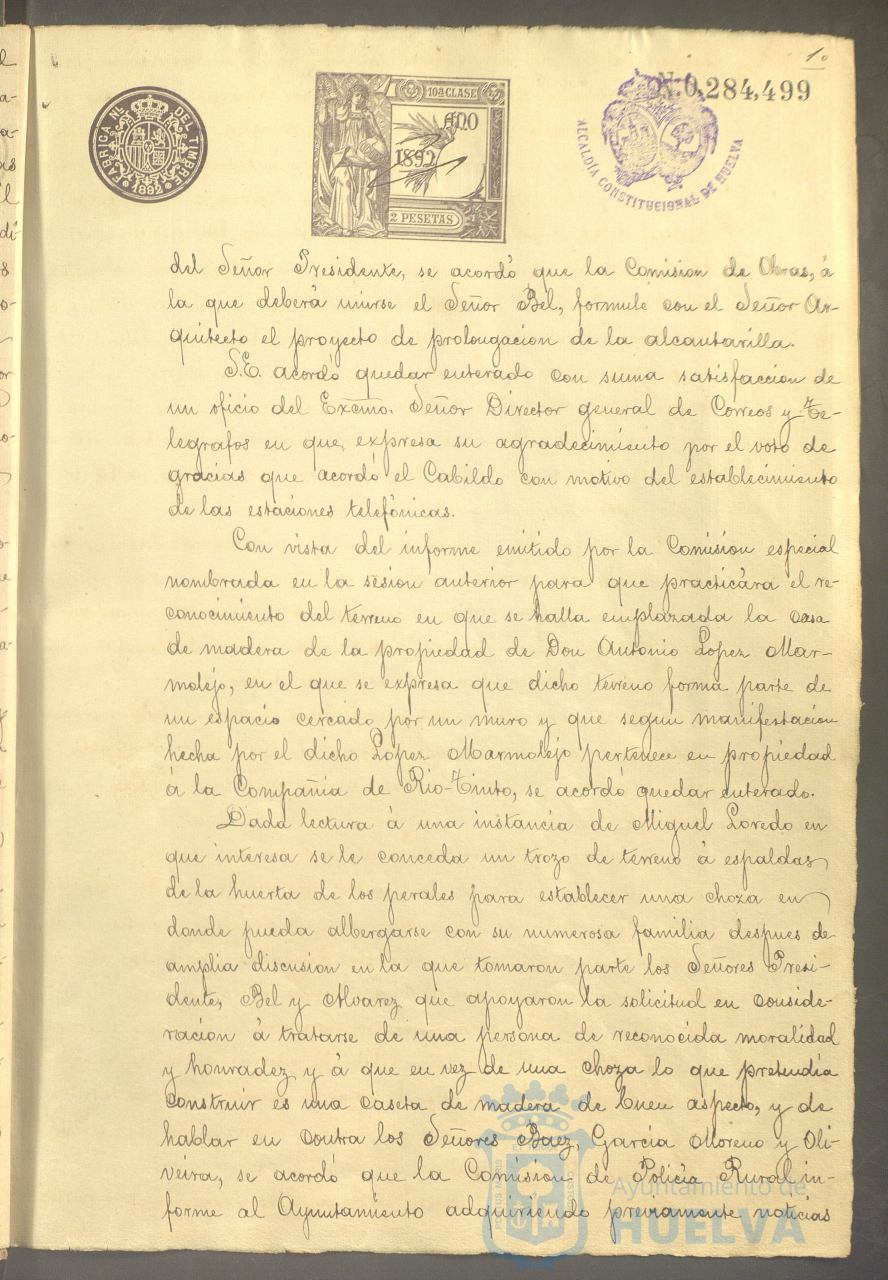 1º
FABRICA NL. DEL TIMBRE
1892
10ª CLASE
AÑO
1892
2 PESETAS
N.0,284,499
ALCALDIA CONSTITUCIONAL DE HUELVA
del Señor Presidente, se acordó que la Comision de Obras, á
la que deberá unirse el Señor Bel, formule con el Señor Ar-
quitecto el proyecto de prolongacion de la alcantarilla.
S.E. acordó quedar enterado con suma satisfaccion de
un oficio del Excmo. Señor Director general de Correos y Te-
légrafos en que expresa su agradecimiento por el voto de
gracias que acordó el Cabildo con motivo del establecimiento
de las estaciones telefónicas.
Con vista del informe emitido por la Comision especial
nombrada en la sesion anterior para que practicára el re-
conocimiento del terreno en que se halla emplazada la casa
de madera de la propiedad de Don Antonio Lopez Mar-
molejo, en el que se expresa que dicho terreno forma parte de
un espacio cercado por un muro y que segun manifestacion
hecha por el dicho López Marmolejo pertenece en propiedad
á la Compañia de Rio-Tinto, se acordó quedar enterado.
Dada lectura á una instancia de Miguel Loredo en
que interesa se le conceda un trozo de terreno á espaldas
de la huerta de los perales para establecer una choza en
donde pueda albergarse con su numerosa familia despues de
amplia discusion en la que tomaron parte los Señores Presi-
dente, Bel y Alvarez que apoyaron la solicitud en conside-
racion á tratarse de una persona de reconocida moralidad
y honradez y á que en vez de una choza lo que pretendía
construir es una caseta de madera de buen aspecto, y de
hablar en contra los Señores Baez, García Moreno y Oli-
veira, se acordó que la Comision de Policía Rural in-
forme al Ayuntamiento adquiriendo previamente noticias
Ayuntamiento de
HUELVA